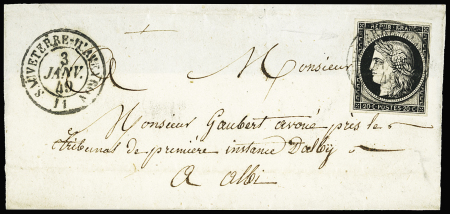 SAUVETERRE-D'AVEYRON
3
JANV.
49
(11)
REPUB. FRANC.
20 C POSTES 20 C
Monsieur
Monsieur Gaubert avoué près le
tribunal de première instance Dalby
a albi